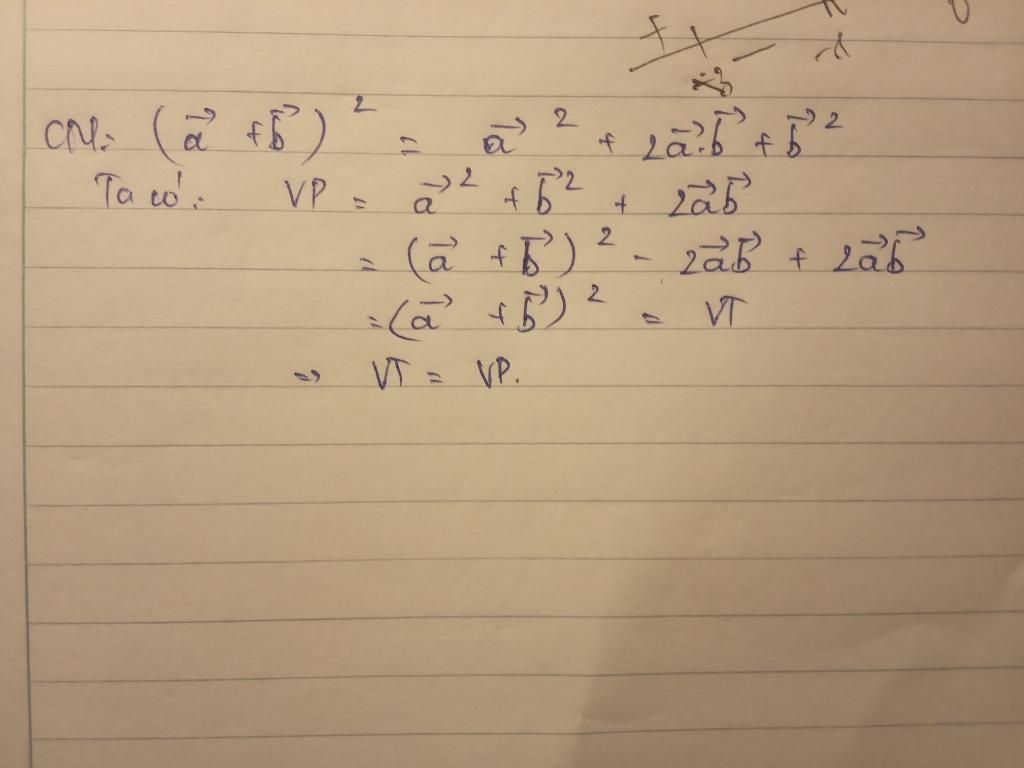 CM: (a⃗ + b⃗)² = a⃗² + 2a⃗.b⃗ + b⃗²
Ta có: VP = a⃗² + b⃗² + 2a⃗b⃗
= (a⃗ + b⃗)² - 2a⃗b⃗ + 2a⃗b⃗
= (a⃗ + b⃗)² = VT
=> VT = VP.